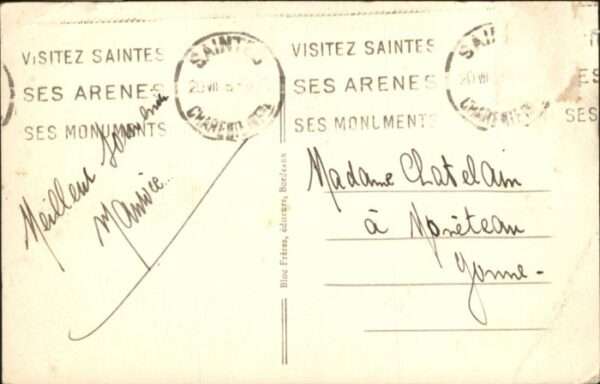 VISITEZ SAINTES
SES ARENES
SES MONUMENTS
SAINTES
20 VII
VISITEZ SAINTES
SES ARENES
SES MONUMENTS
20 VII
SES
Meilleur Souvenir
Maurice
Bloc Frères, éditeurs, Bordeaux
Madame Chatelain
à Monéteau
Yonne-